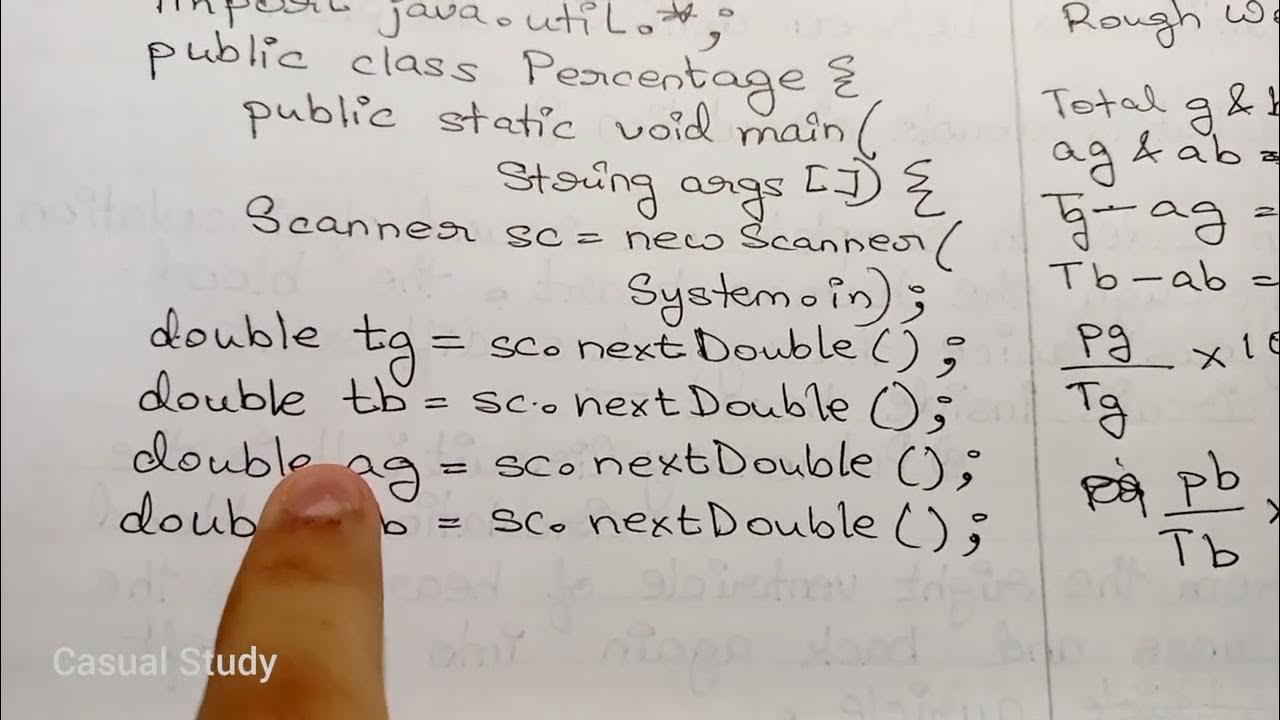 import java.util.*;
public class Percentage {
public static void main(
String args []) {
Scanner sc = new Scanner(
System.in);
double tg = sc.nextDouble();
double tb = sc.nextDouble();
double ag = sc.nextDouble();
doub b = sc.nextDouble();
Rough
Total g &
ag & ab =
Tg - ag =
Tb - ab =
pg
× 10
Tg
pb
Tb
Casual Study